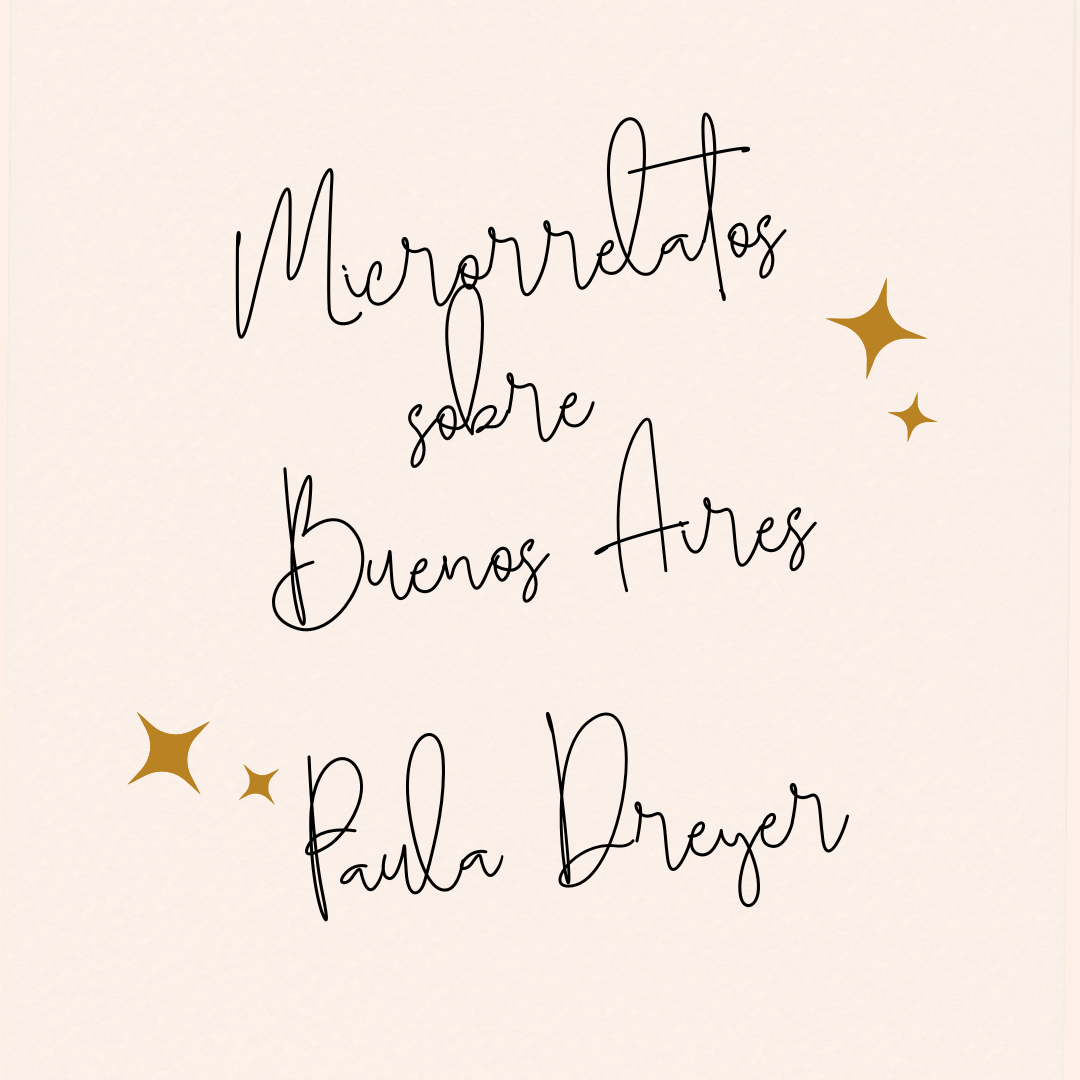 Microrrelatos
sobre
Buenos Aires
Paula Dreyer